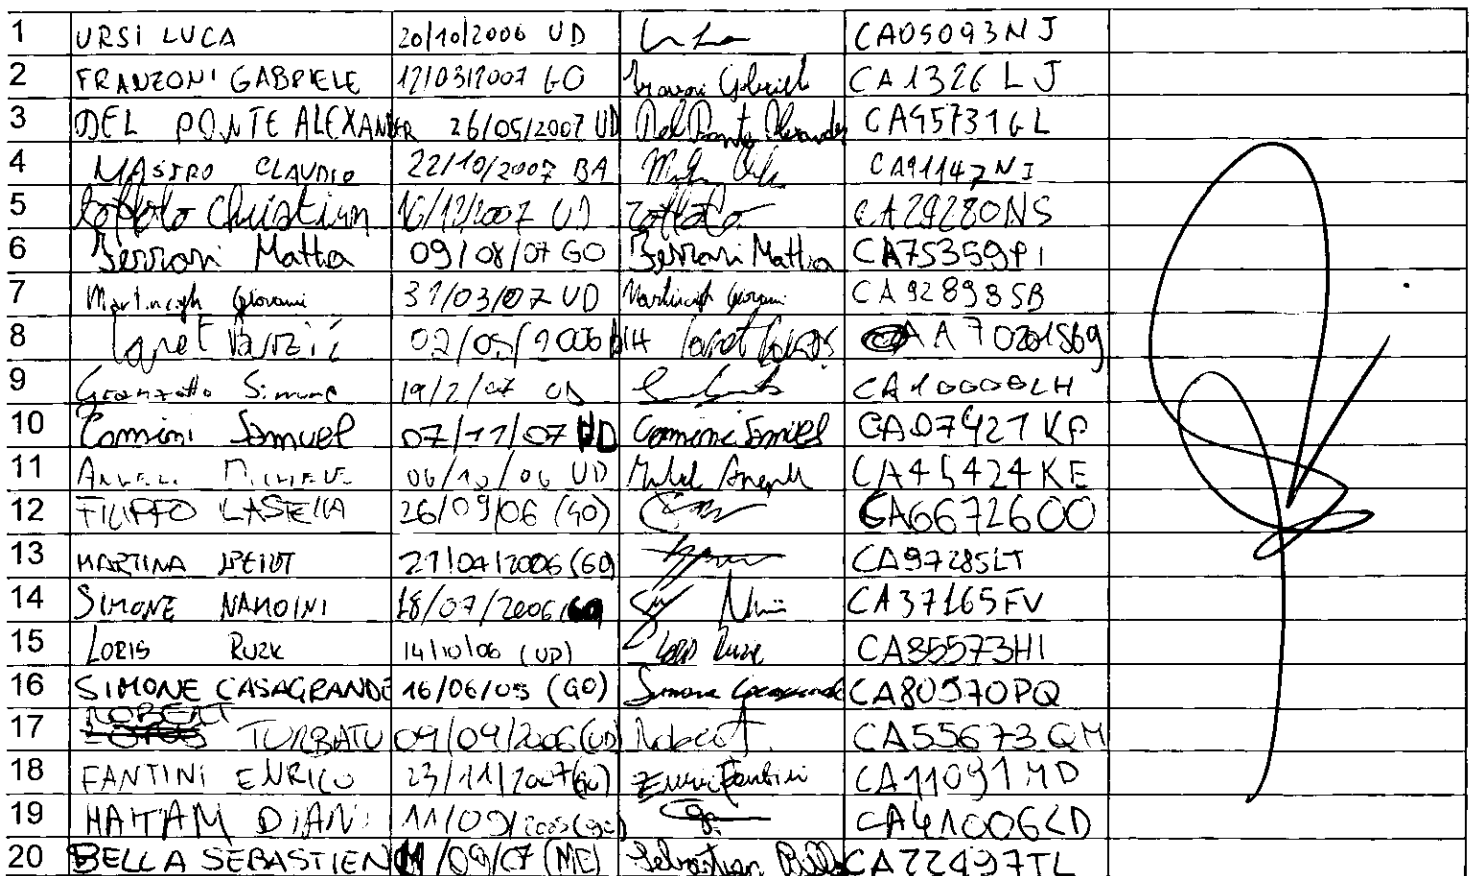 1 URSI LUCA 20/10/2006 UD CA05093NJ
2 FRANZONI GABRIELE 12/03/2007 GO CA1326LJ
3 DEL PONTE ALEXANDER 26/05/2007 UD Del Ponte Alexander CA95731GL
4 MASTRO CLAUDIO 22/10/2007 BA CA91147NI
5 Christian 16/12/2007 UD CA29280NS
6 Ferrari Mattia 09/08/07 GO Ferrari Mattia CA75359PI
7 Giovanni 31/03/07 UD CA92898SB
8 02/05/2006
9 Simone 19/2/07 UD
10 Comini Samuel 07/11/07 UD Comini Samuel CA07427KP
11 06/10/06 UD CA45424KE
12 FILIPPO LASELLA 26/09/06 (GO) CA66726OO
13 MARTINA 21/04/2006 (GO) CA97285LT
14 SIMONE NAMOINI 18/07/2006 CA37165FV
15 LORIS RUZK 14/10/06 (UD) CA85573HI
16 SIMONE CASAGRANDE 16/06/05 (GO) Simone Casagrande CA80970PQ
17 ROBERT TURBATU 09/09/2006 (UD) Robert T. CA55673QM
18 FANTINI ENRICO 23/11/2007 (GO) Enrico Fantini CA11091MD
19 HAITAM DIANI CA41006LD
20 BELLA SEBASTIEN /09/07 (ME) Sebastien Bella CA22497TL